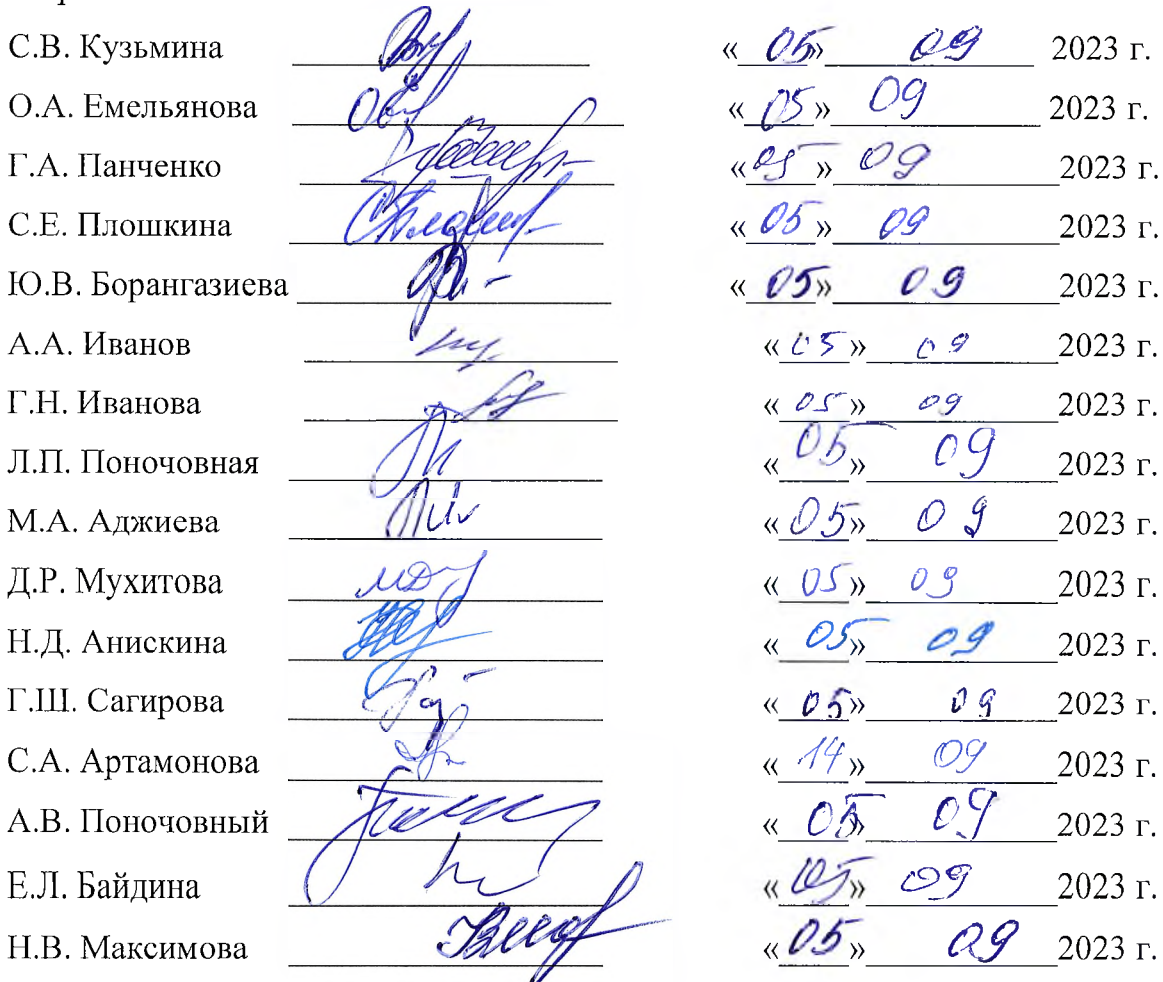 С.В. Кузьмина « 05» 09 2023 г.
О.А. Емельянова « 05 » 09 2023 г.
Г.А. Панченко «05 » 09 2023 г.
С.Е. Плошкина « 05 » 09 2023 г.
Ю.В. Борангазиева « 05» 09 2023 г.
А.А. Иванов « 05 » 09 2023 г.
Г.Н. Иванова « 05 » 09 2023 г.
Л.П. Поночовная « 05 » 09 2023 г.
М.А. Аджиева « 05 » 09 2023 г.
Д.Р. Мухитова « 05 » 09 2023 г.
Н.Д. Анискина « 05» 09 2023 г.
Г.Ш. Сагирова « 05» 09 2023 г.
С.А. Артамонова « 14 » 09 2023 г.
А.В. Поночовный « 05» 09 2023 г.
Е.Л. Байдина « 05» 09 2023 г.
Н.В. Максимова « 05 » 09 2023 г.